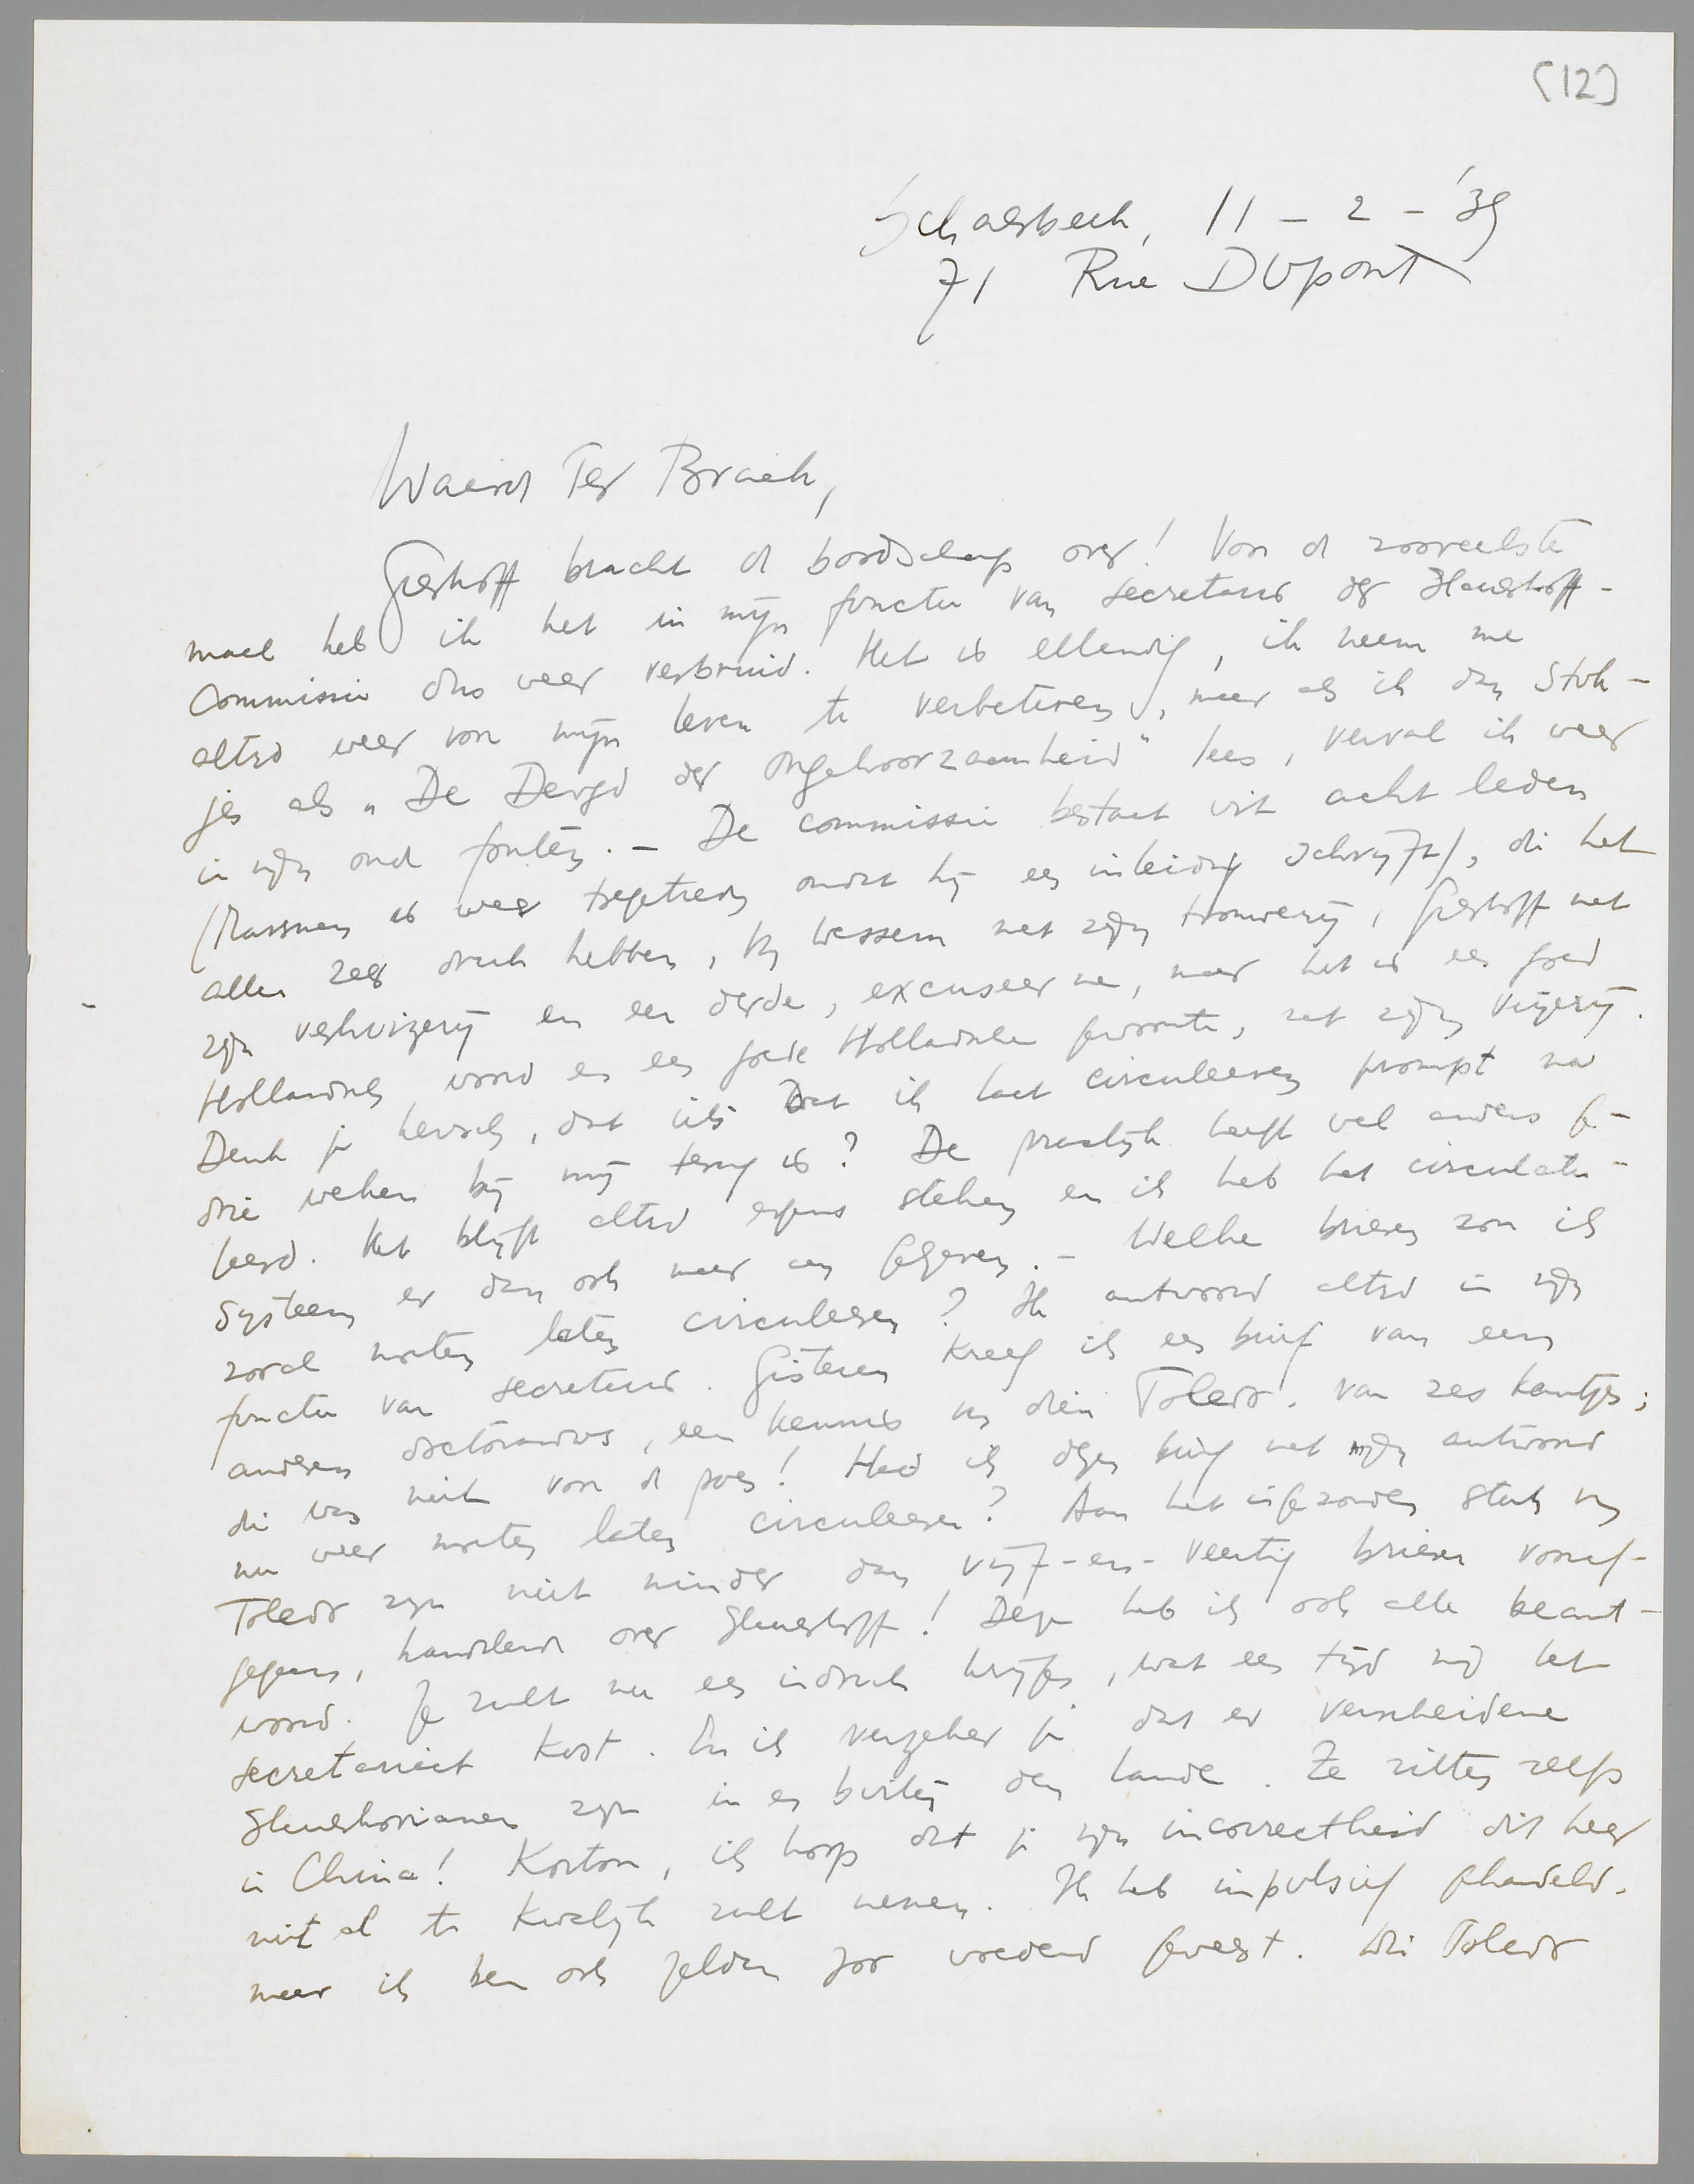 [12]
Schaerbeek, 11 - 2 - '39
71 Rue DUpont
Waarde Ter Braak,
Greshoff bracht de boodschap over! Voor de zooveelste
maal heb ik het in mijn functie van secretaris der Slauerhoff-
Commissie dus weer verbruid. Het is ellendig, ik neem me
altijd weer voor mijn leven te verbeteren, maar als ik dan stuk-
jes als „De Deugd der ongehoorzaamheid" lees, verval ik weer
in mijn oude fouten. - De commissie bestaat uit acht leden
(Marsman is weer toegetreden omdat hij een inleiding schrijft), die het
allen zeer druk hebben, bij Wessem met zijn trouwerij, Greshoff met
zijn verhuizerij en een derde, excuseer me, maar het is een goed
Hollandsch woord en een goede Hollandsche gewoonte, met zijn vrijerij.
Denk je heusch, dat iets dat ik laat circuleeren prompt na
drie weken bij mij terug is? De practijk heeft wel anders ge-
leerd. Het blijft altijd ergens steken en ik heb het circulatie-
systeem er dan ook maar aan gegeven. - Welke brieven zou ik
zooal moeten laten circuleeren? Ik antwoord altijd in mijn
functie van secretaris. Gisteren kreeg ik een brief van een
anderen doctorandus, een kennis van dien Toledo, van zes kantjes;
die was niet voor de poes! Had ik dezen brief met mijn antwoord
nu weer moeten laten circuleeren? Aan het ingezonden stuk van
Toledo zijn niet minder dan vijf-en-veertig brieven vooraf-
gegaan, handelend over Slauerhoff! Deze heb ik ook alle beant-
woord. Je zult nu een indruk krijgen, wat een tijd mij het
secretariaat kost. En ik verzeker je dat er verscheidene
Slauerhovianen zijn in en buiten den lande. Ze zitten zelfs
in China! Kortom, ik hoop dat je mijn incorrectheid dit keer
niet al te kwalijk zult nemen. Ik heb impulsief gehandeld,
maar ik ben ook zelden zoo woedend geweest. Die Toledo